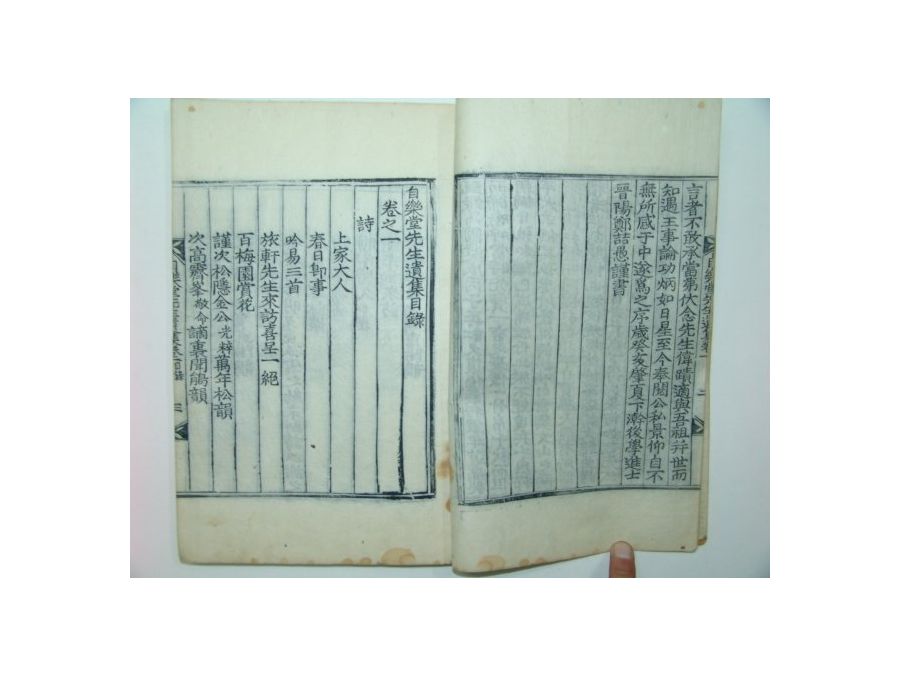 言者不敢承當第伏念先生偉蹟適與吾祖幷世而
知遇王事論功炳如日星至今奉閱公私景仰自不
無所感于中遂寫之序歲癸亥肇夏下澣後學進士
晉陽鄭喆愚謹書
自樂堂先生遺集目錄
卷之一
詩
上家大人
春日卽事
吟易三首
旅軒先生來訪喜呈一絕
百梅園賞花
謹次松隱金公光粹萬年松韻
次高霽峯敬命謫裏聞鵑韻